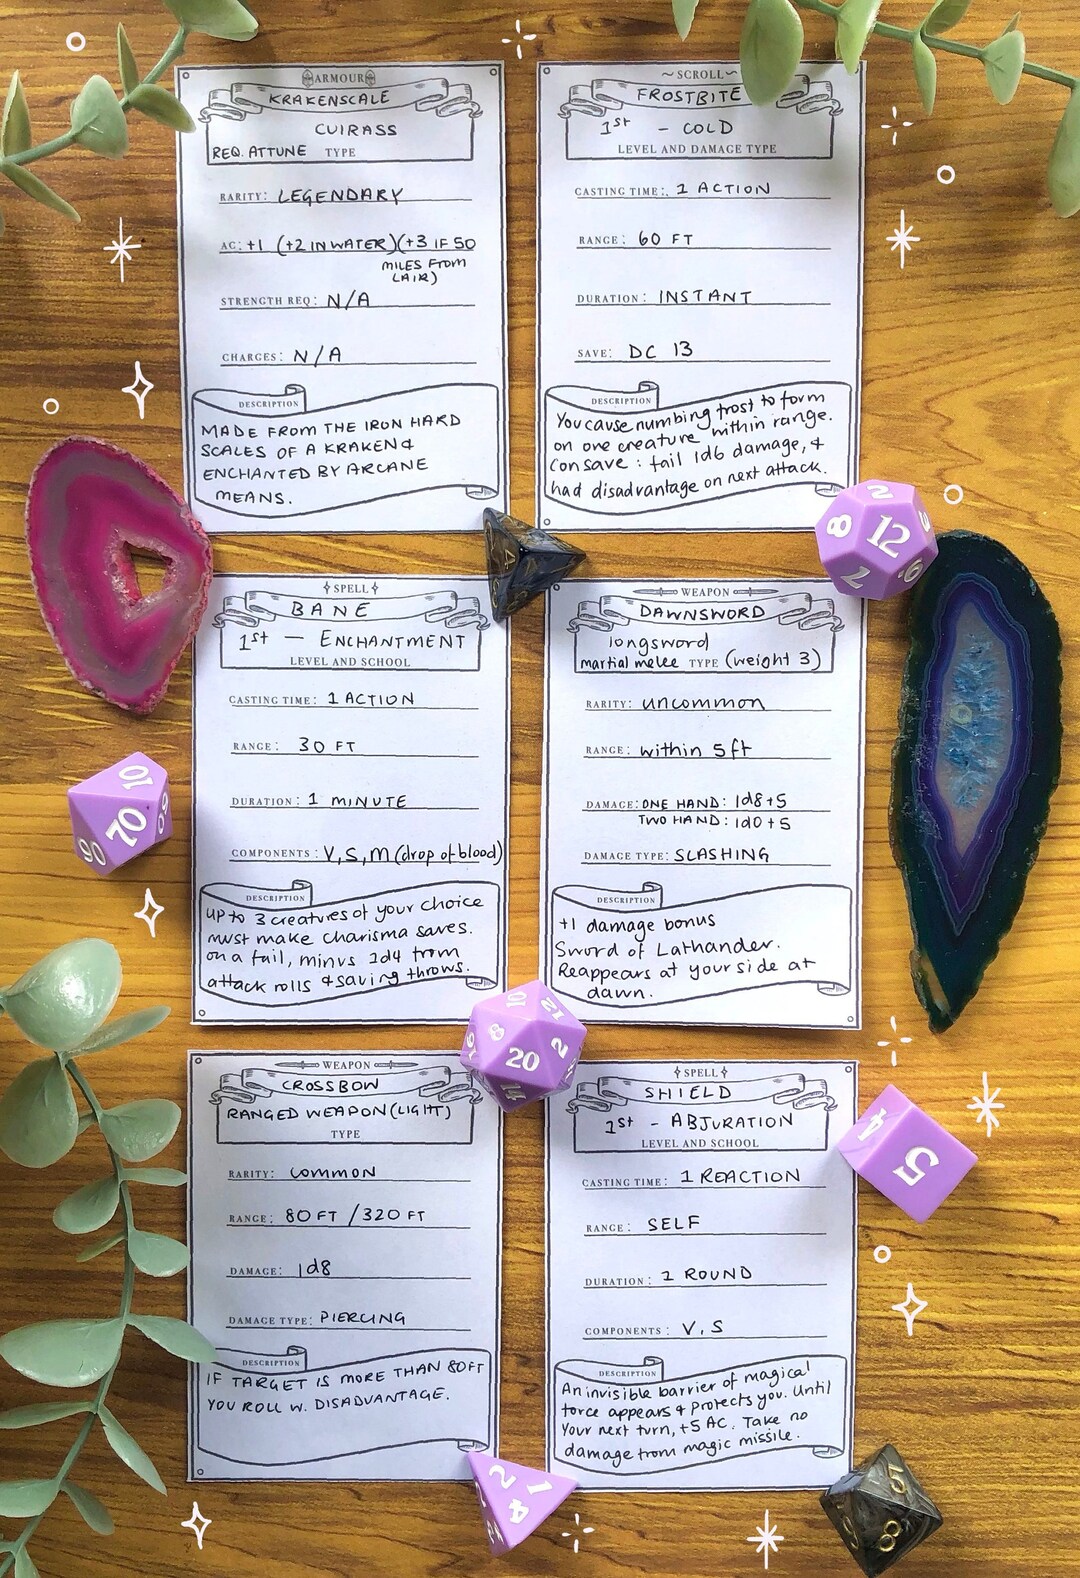 ARMOUR
KRAKENSCALE
CUIRASS
REQ. ATTUNE TYPE
RARITY: LEGENDARY
AC: +1 (+2 IN WATER)(+3 IF 50
MILES FROM
LAIR)
STRENGTH REQ: N/A
CHARGES: N/A
DESCRIPTION
MADE FROM THE IRON HARD
SCALES OF A KRAKEN &
ENCHANTED BY ARCANE
MEANS.
~ SCROLL ~
FROSTBITE
1st - COLD
LEVEL AND DAMAGE TYPE
CASTING TIME: 1 ACTION
RANGE: 60 FT
DURATION: INSTANT
SAVE: DC 13
DESCRIPTION
You cause numbing frost to form
on one creature within range.
Con save: fail 1d6 damage, &
had disadvantage on next attack.
SPELL
BANE
1st — ENCHANTMENT
LEVEL AND SCHOOL
CASTING TIME: 1 ACTION
RANGE: 30 FT
DURATION: 1 MINUTE
COMPONENTS: V, S, M (drop of blood)
DESCRIPTION
up to 3 creatures of your choice
must make charisma saves.
on a fail, minus 1d4 from
attack rolls & saving throws.
WEAPON
DAWNSWORD
longsword
martial melee TYPE (weight 3)
RARITY: uncommon
RANGE: within 5ft
DAMAGE: ONE HAND: 1d8+5
TWO HAND: 1d0+5
DAMAGE TYPE: SLASHING
DESCRIPTION
+1 damage bonus
Sword of Lathander.
Reappears at your side at
dawn.
WEAPON
CROSSBOW
RANGED WEAPON (LIGHT)
TYPE
RARITY: COMMON
RANGE: 80 FT / 320 FT
DAMAGE: 1d8
DAMAGE TYPE: PIERCING
DESCRIPTION
IF TARGET IS MORE THAN 80FT
YOU ROLL W. DISADVANTAGE.
SPELL
SHIELD
1st - ABJURATION
LEVEL AND SCHOOL
CASTING TIME: 1 REACTION
RANGE: SELF
DURATION: 1 ROUND
COMPONENTS: V, S
DESCRIPTION
An invisible barrier of magical
force appears & protects you. Until
Your next turn, +5 AC. Take no
damage from magic missile.
4
2
8
12
7
9
10
70
90
10
12
8
20
2
16
14
4
5
2
1
4
5
8